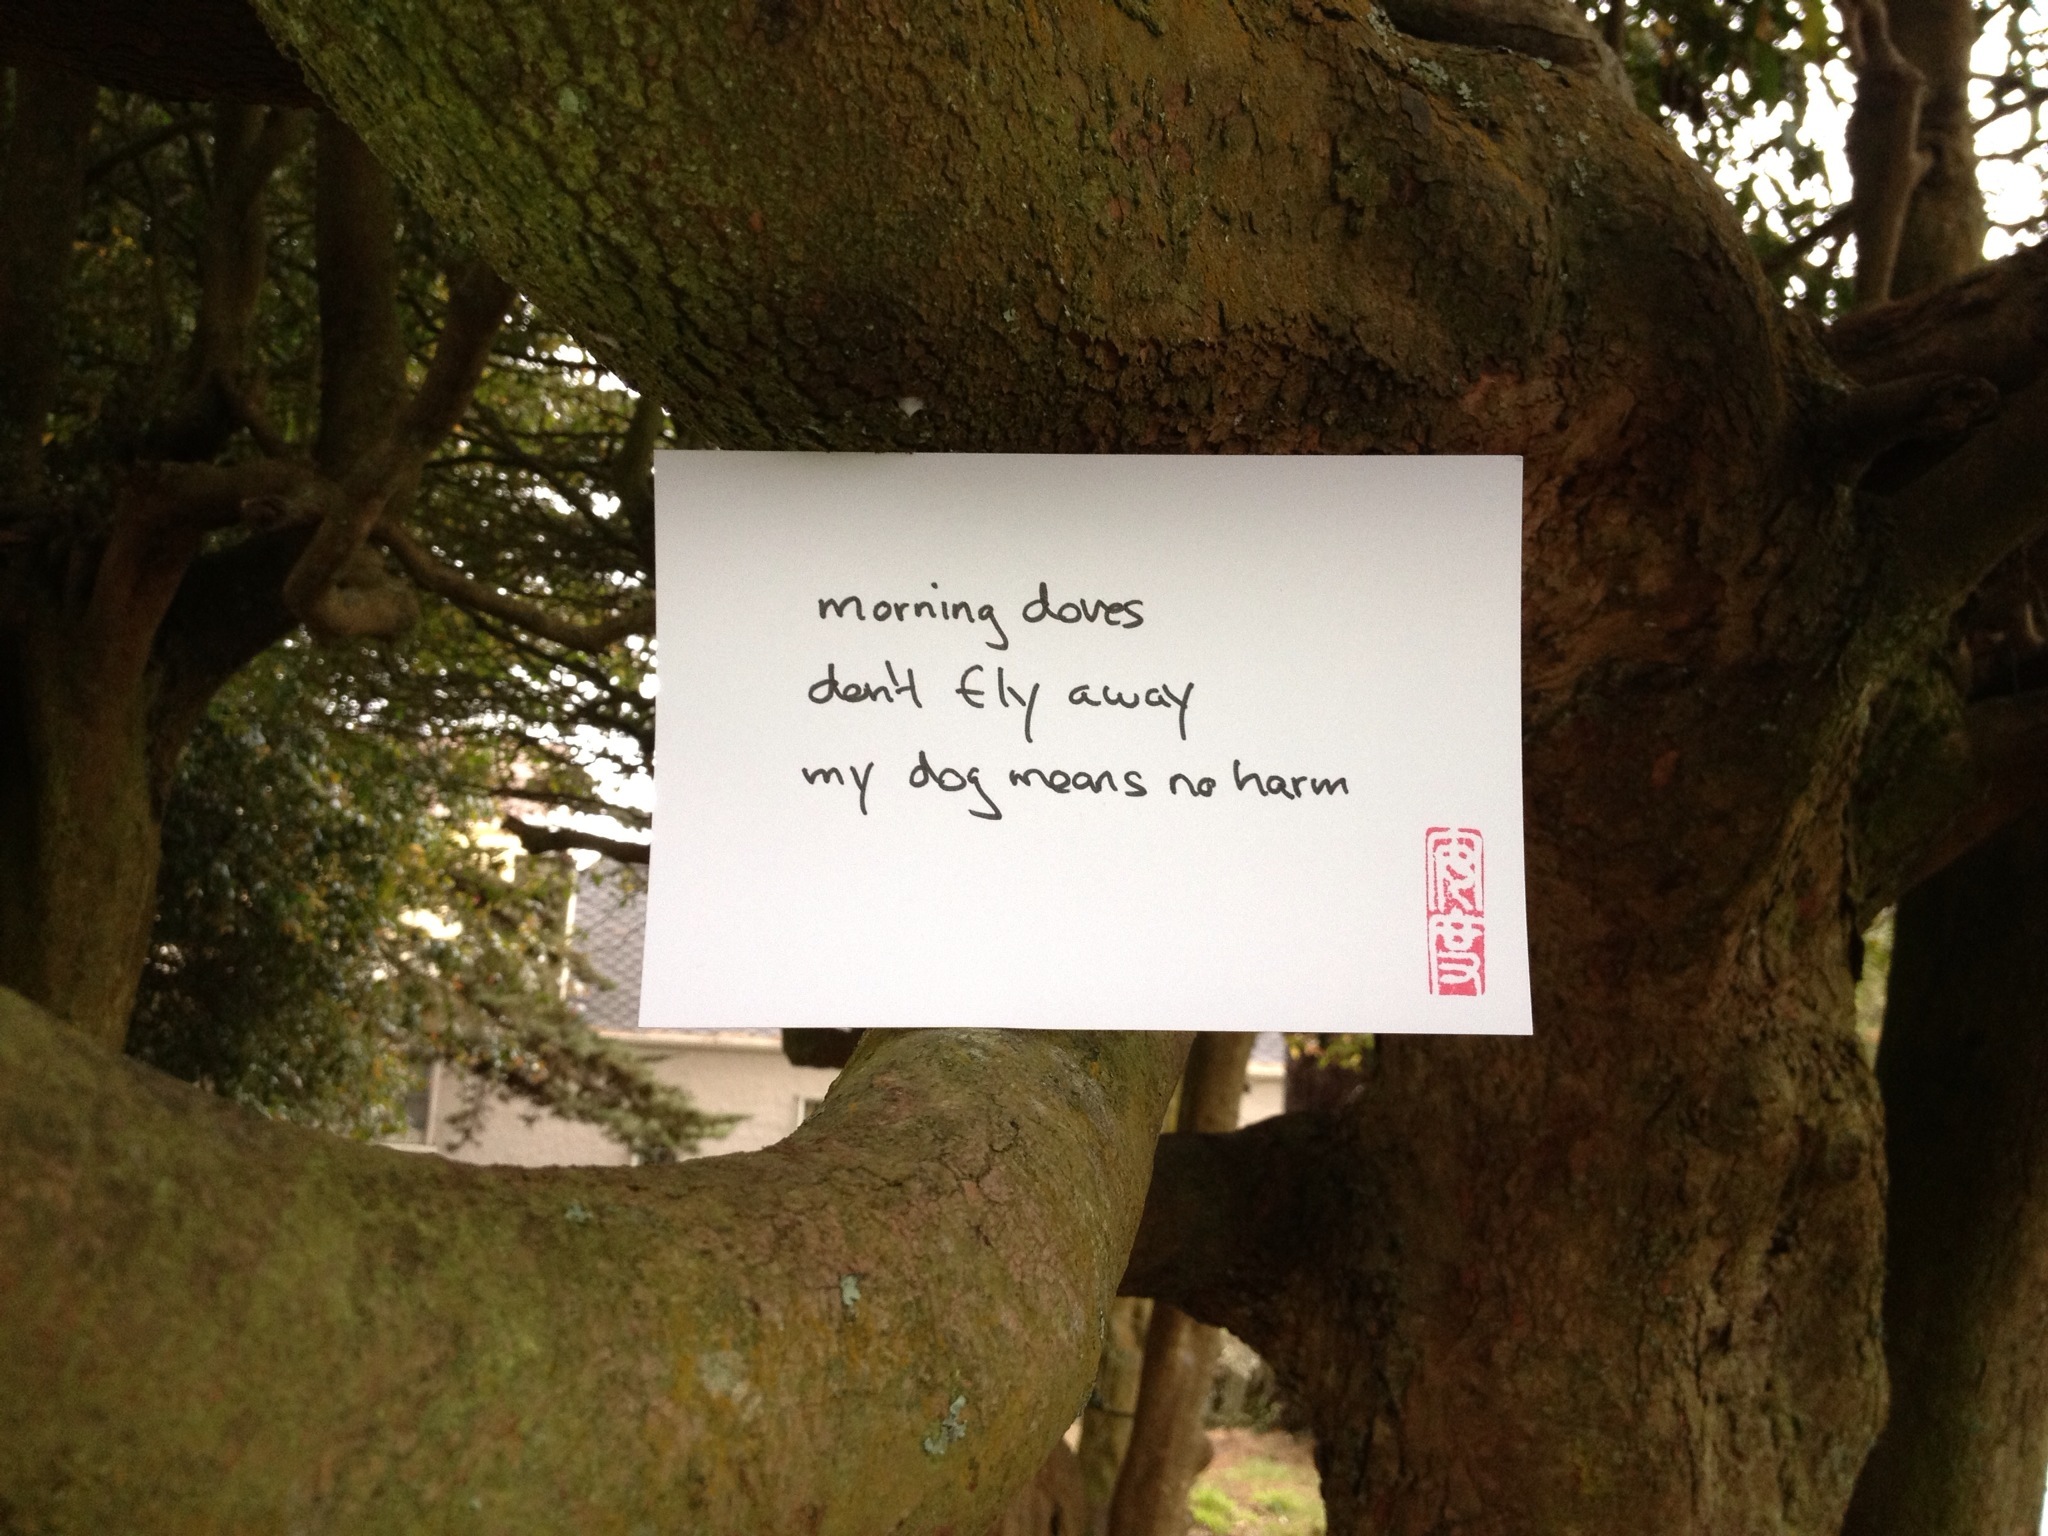 morning doves
don't fly away
my dog means no harm